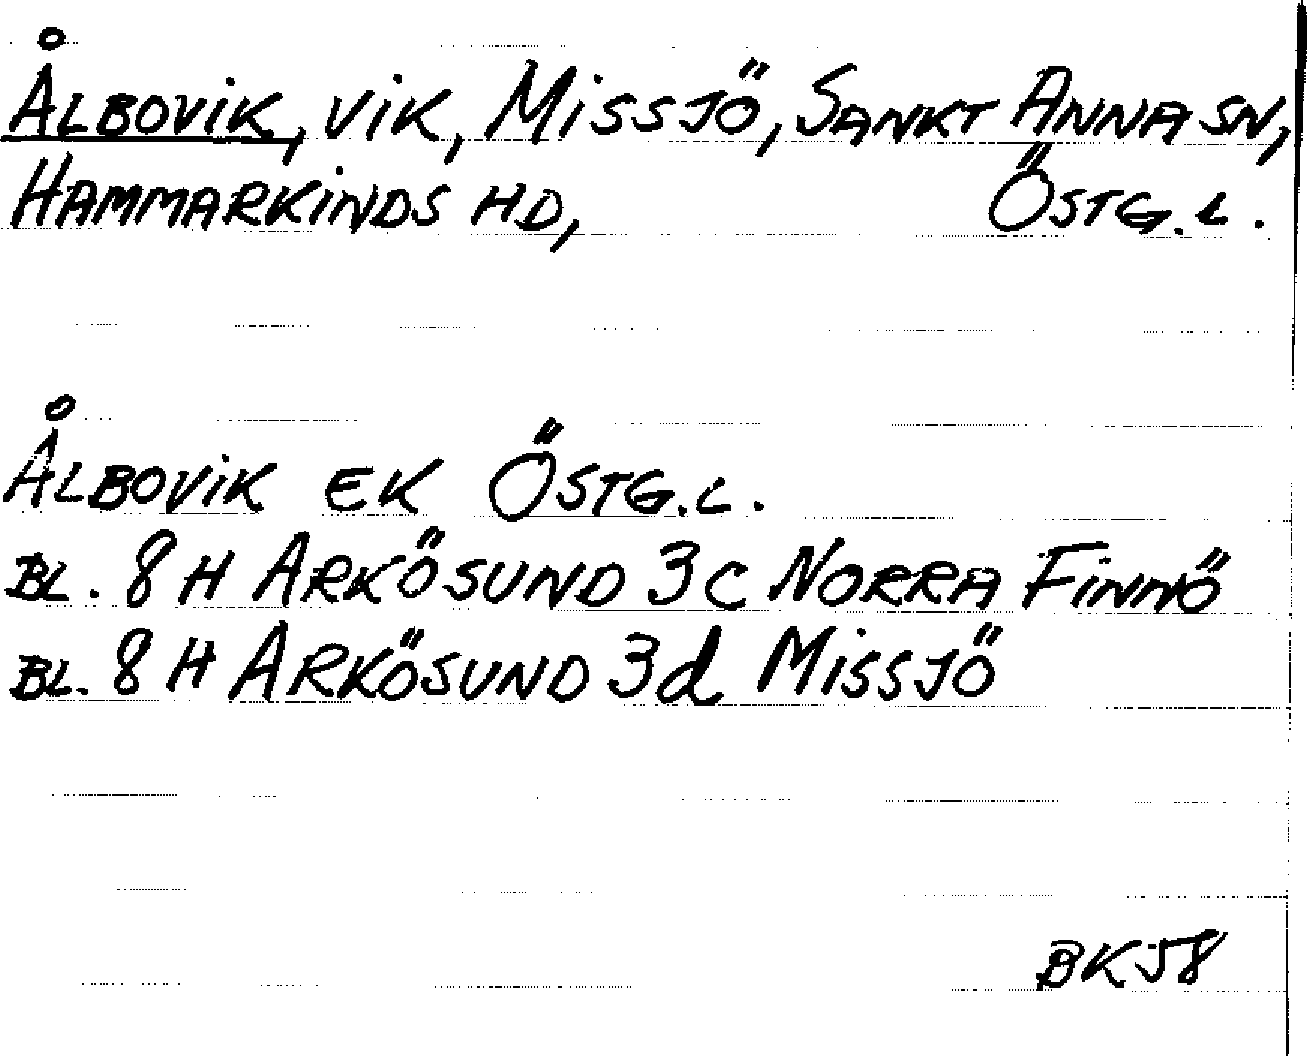 Ålbovik, vik, Missjö, Sankt Anna sn,
Hammarkinds hd, Östg.l.
Ålbovik EK Östg.l.
Bl. 8 H Arkösund 3c Norra Finnö
Bl. 8 H Arkösund 3d Missjö
BK58